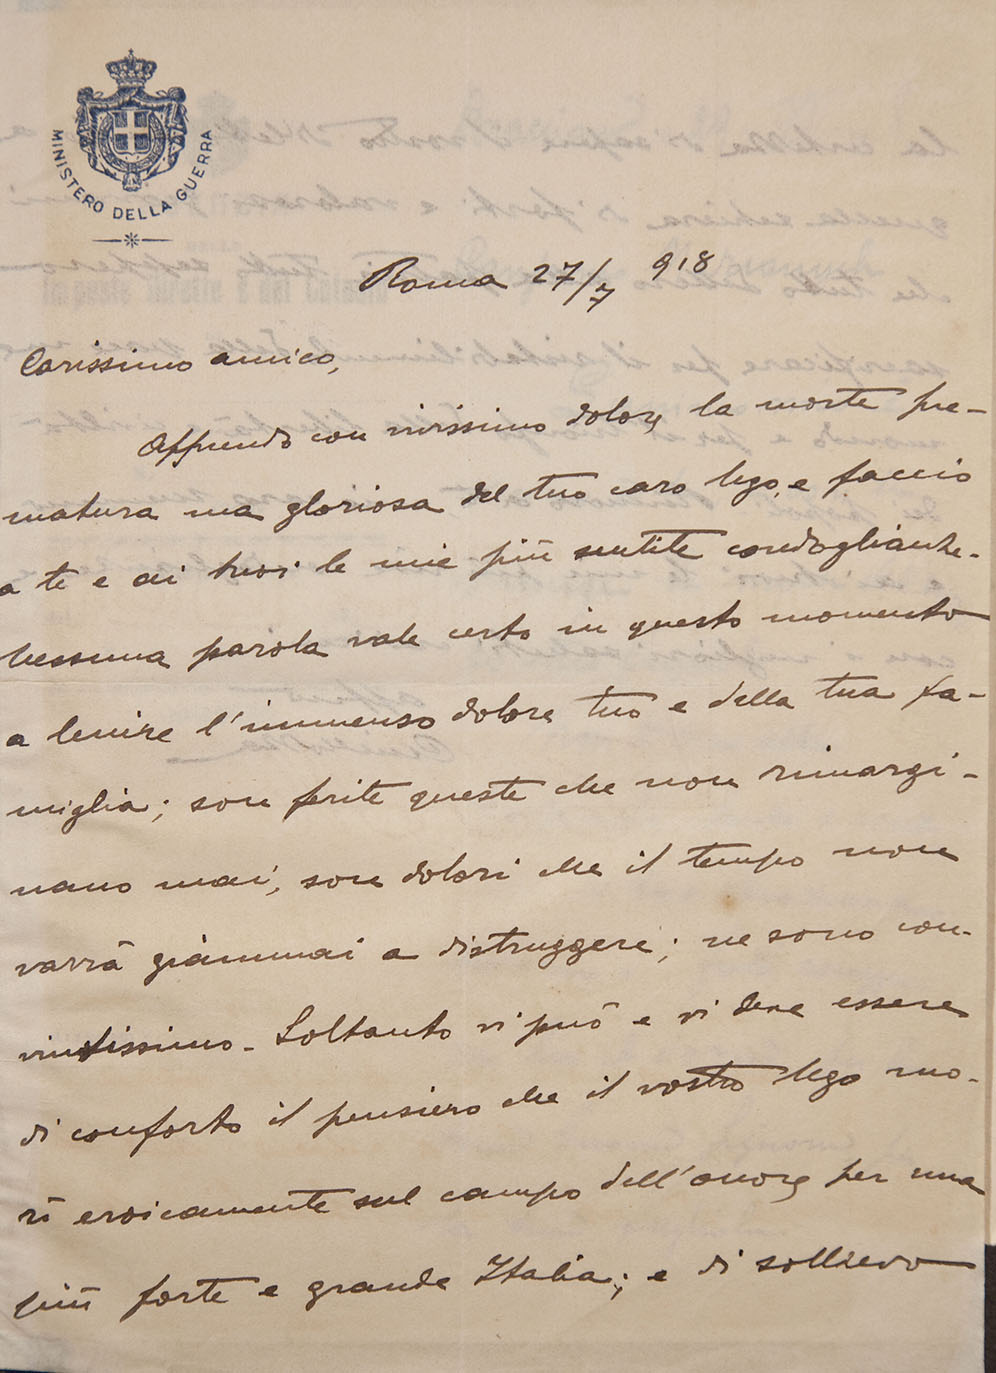 MINISTERO DELLA GUERRA
Roma 27/7 918
Carissimo amico,
Apprendo con vivissimo dolore la morte pre-
matura ma gloriosa del tuo caro Ugo, e faccio
a te e ai tuoi le mie più sentite condoglianze.
Nessuna parola vale certo in questo momento
a lenire l'immenso dolore tuo e della tua fa-
miglia; son ferite queste che non rimargi-
nano mai, son dolori che il tempo non
varrà giammai a distruggere; ne sono con-
vintissimo. Soltanto vi può e vi deve essere
di conforto il pensiero che il vostro Ugo mo-
rì eroicamente sul campo dell'onore per una
più forte e grande Italia; e di sollievo